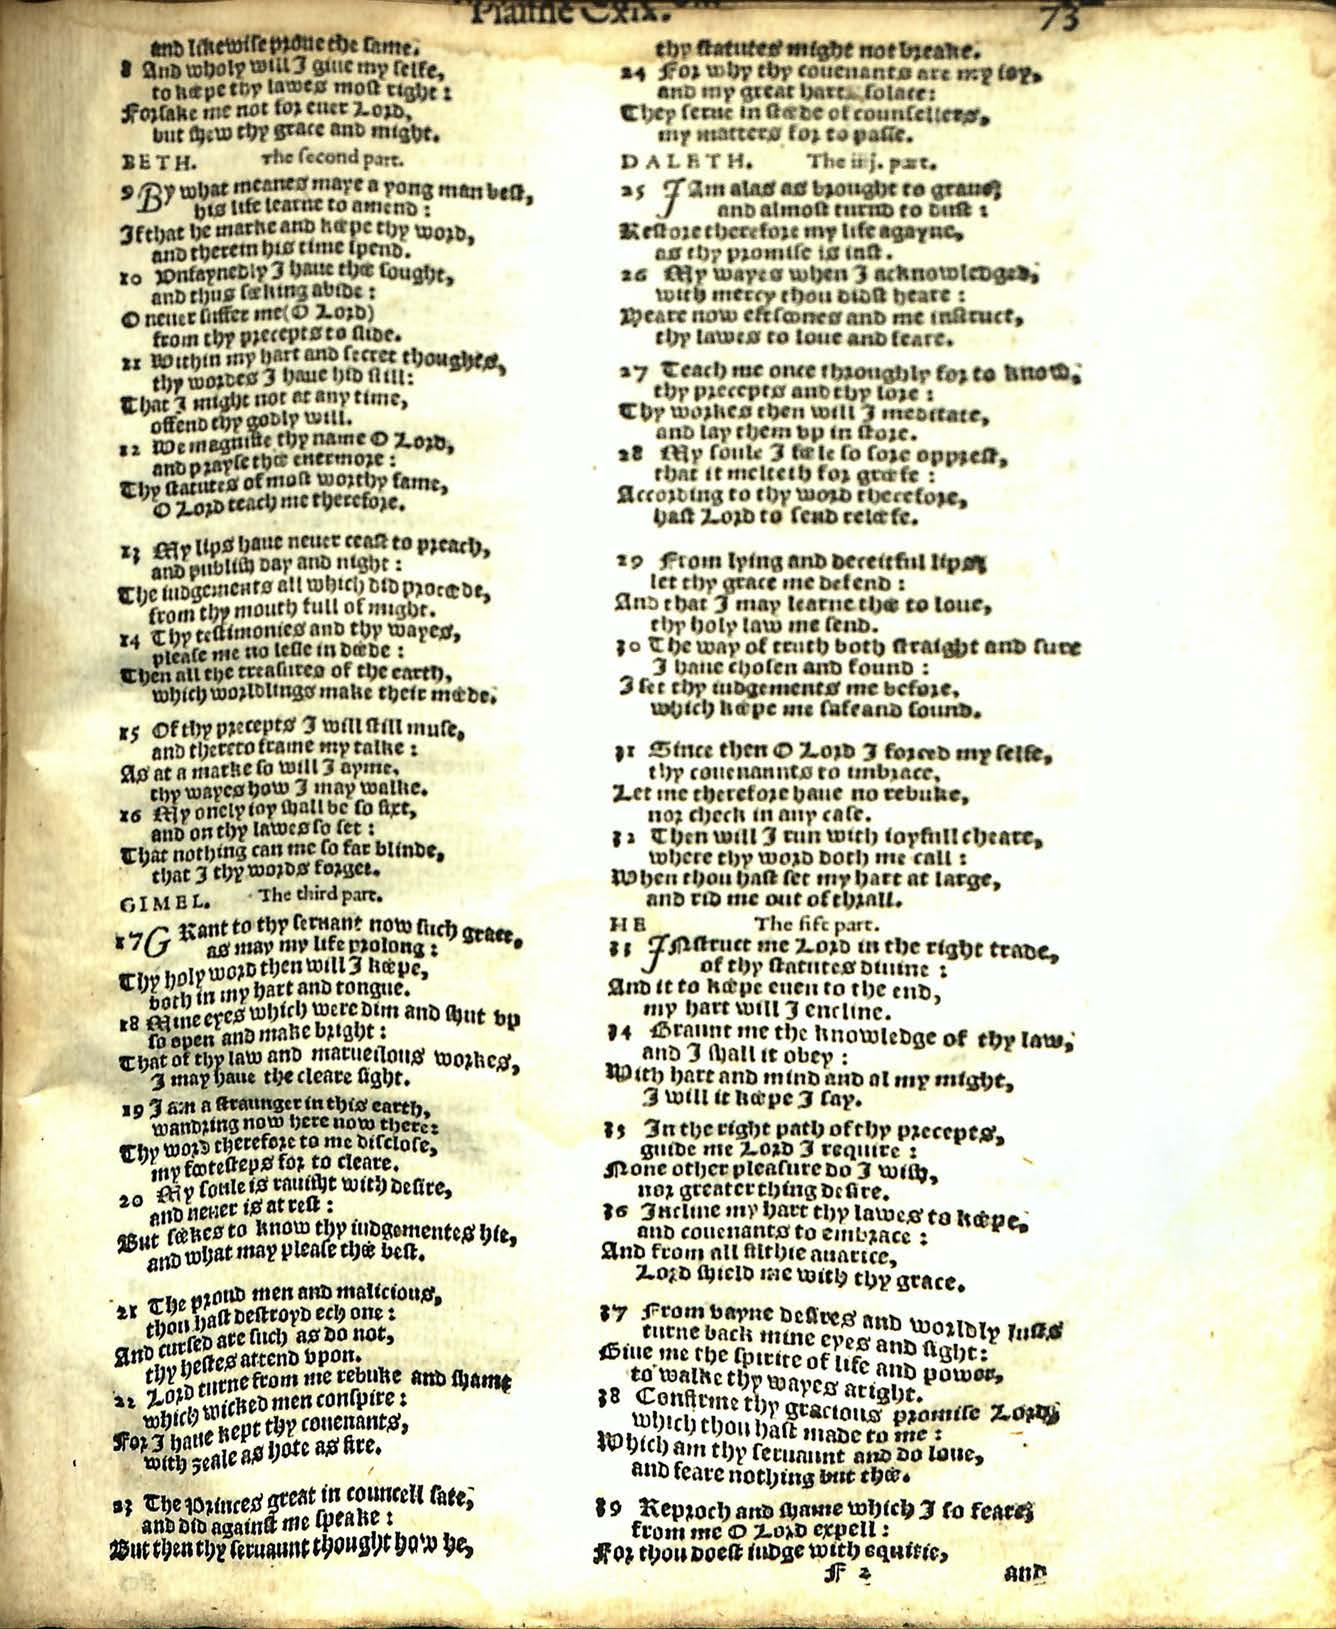 Psalme Cxix. 73
and likewise proue the same.
8 And wholy will I giue my selfe,
to kéepe thy lawes most right :
Forsake me not for euer Lord,
but shew thy grace and might.
BETH. The second part.
9 By what meanes maye a yong man best,
his life learne to amend :
If that he marke and kéepe thy word,
and therein his time spend.
10 Unfaynedly I haue thée sought,
and thus séeking abide :
O neuer suffer me (O Lord)
from thy precepts to slide.
11 Within my hart and secret thoughts,
thy wordes I haue hid still:
That I might not at any time,
offend thy godly will.
12 We magnifie thy name O Lord,
and prayse thée euermore :
Thy statutes of most worthy fame,
O Lord teach me therefore.
13 My lips haue neuer ceast to preach,
and publish day and night :
The iudgements all which did procéede,
from thy mouth full of might.
14 Thy testimonies and thy wayes,
please me no lesse in déede :
Then all the treasures of the earth,
which worldlings make their méede.
15 Of thy precepts I will still muse,
and thereto frame my talke :
As at a marke so will I ayme,
thy wayes how I may walke.
16 My onely ioy shall be so fixt,
and on thy lawes so set :
That nothing can me so far blinde,
that I thy words forget.
GIMEL. The third part.
17 GRant to thy seruant now such grace,
as may my life prolong :
Thy holy word then will I kéepe,
both in my hart and tongue.
18 Mine eyes which were dim and shut vp
so open and make bright :
That of thy law and maruelous workes,
I may haue the cleare sight.
19 I am a straunger in this earth,
wandring now here now there:
Thy word therefore to me disclose,
my footesteps for to cleare.
20 My soule is rauisht with desire,
and neuer is at rest :
But séekes to know thy iudgementes hie,
and what may please thée best.
21 The proud men and malicious,
thou hast destroyd ech one :
And cursed are such as do not,
thy hestes attend vpon.
22 Lord turne from me rebuke and shame
which wicked men conspire :
For I haue kept thy couenants,
with zeale as hote as fire.
23 The Princes great in councell sate,
and did against me speake :
But then thy seruaunt thought how he,
thy statutes might not breake.
24 For why thy couenants are my ioy,
and my great hart solace:
They serue in stéede of counsellers,
my matters for to passe.
DALETH. The iiij. part.
25 I Am alas as brought to graue,
and almost turnd to dust :
Restore therefore my life agayne,
as thy promise is iust.
26 My wayes when I acknowledged,
with mercy thou didst heare :
Heare now eftsoones and me instruct,
thy lawes to loue and feare.
27 Teach me once throughly for to know,
thy precepts and thy lore :
Thy workes then will I meditate,
and lay them vp in store.
28 My soule I féele so sore opprest,
that it melteth for gréefe :
According to thy word therefore,
hast Lord to send reléefe.
29 From lying and deceitful lips,
let thy grace me defend :
And that I may learne thée to loue,
thy holy law me send.
30 The way of truth both straight and sure
I haue chosen and found :
I set thy iudgements me before,
which kéepe me safe and sound.
31 Since then O Lord I forced my selfe,
thy couenannts to imbrace,
Let me therefore haue no rebuke,
nor check in any case.
32 Then will I run with ioyfull cheare,
where thy word doth me call :
When thou hast set my hart at large,
and rid me out of thrall.
HE The fift part.
33 INstruct me Lord in the right trade,
of thy statutes diuine :
And it to kéepe euen to the end,
my hart will I encline.
34 Graunt me the knowledge of thy law,
and I shall it obey :
With hart and mind and al my might,
I will it kéepe I say.
35 In the right path of thy precepts,
guide me Lord I require :
None other pleasure do I wish,
nor greater thing desire.
36 Incline my hart thy lawes to kéepe,
and couenants to embrace :
And from all filthie auarice,
Lord shield me with thy grace.
37 From vayne desires and worldly lusts
turne back mine eyes and sight:
Giue me the spirite of life and power,
to walke thy wayes aright.
38 Confirme thy gracious promise Lord,
which thou hast made to me :
Which am thy seruaunt and do loue,
and feare nothing but thée.
39 Reproch and shame which I so feare,
from me O Lord expell :
For thou doest iudge with equitie,
F 2 and